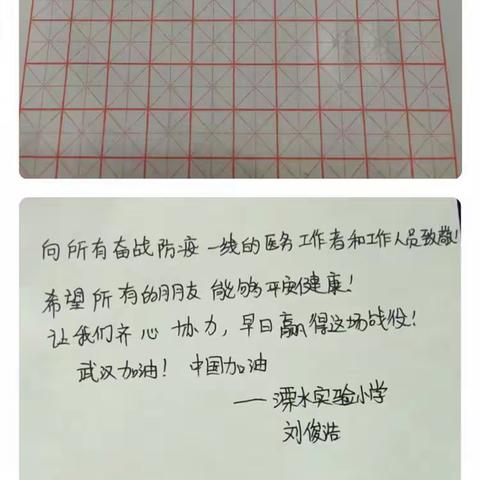 向所有奋战防疫一线的医务工作者和工作人员致敬!
希望所有的朋友能够平安健康!
让我们齐心协力,早日赢得这场战役!
武汉加油! 中国加油
——溧水实验小学
刘俊浩